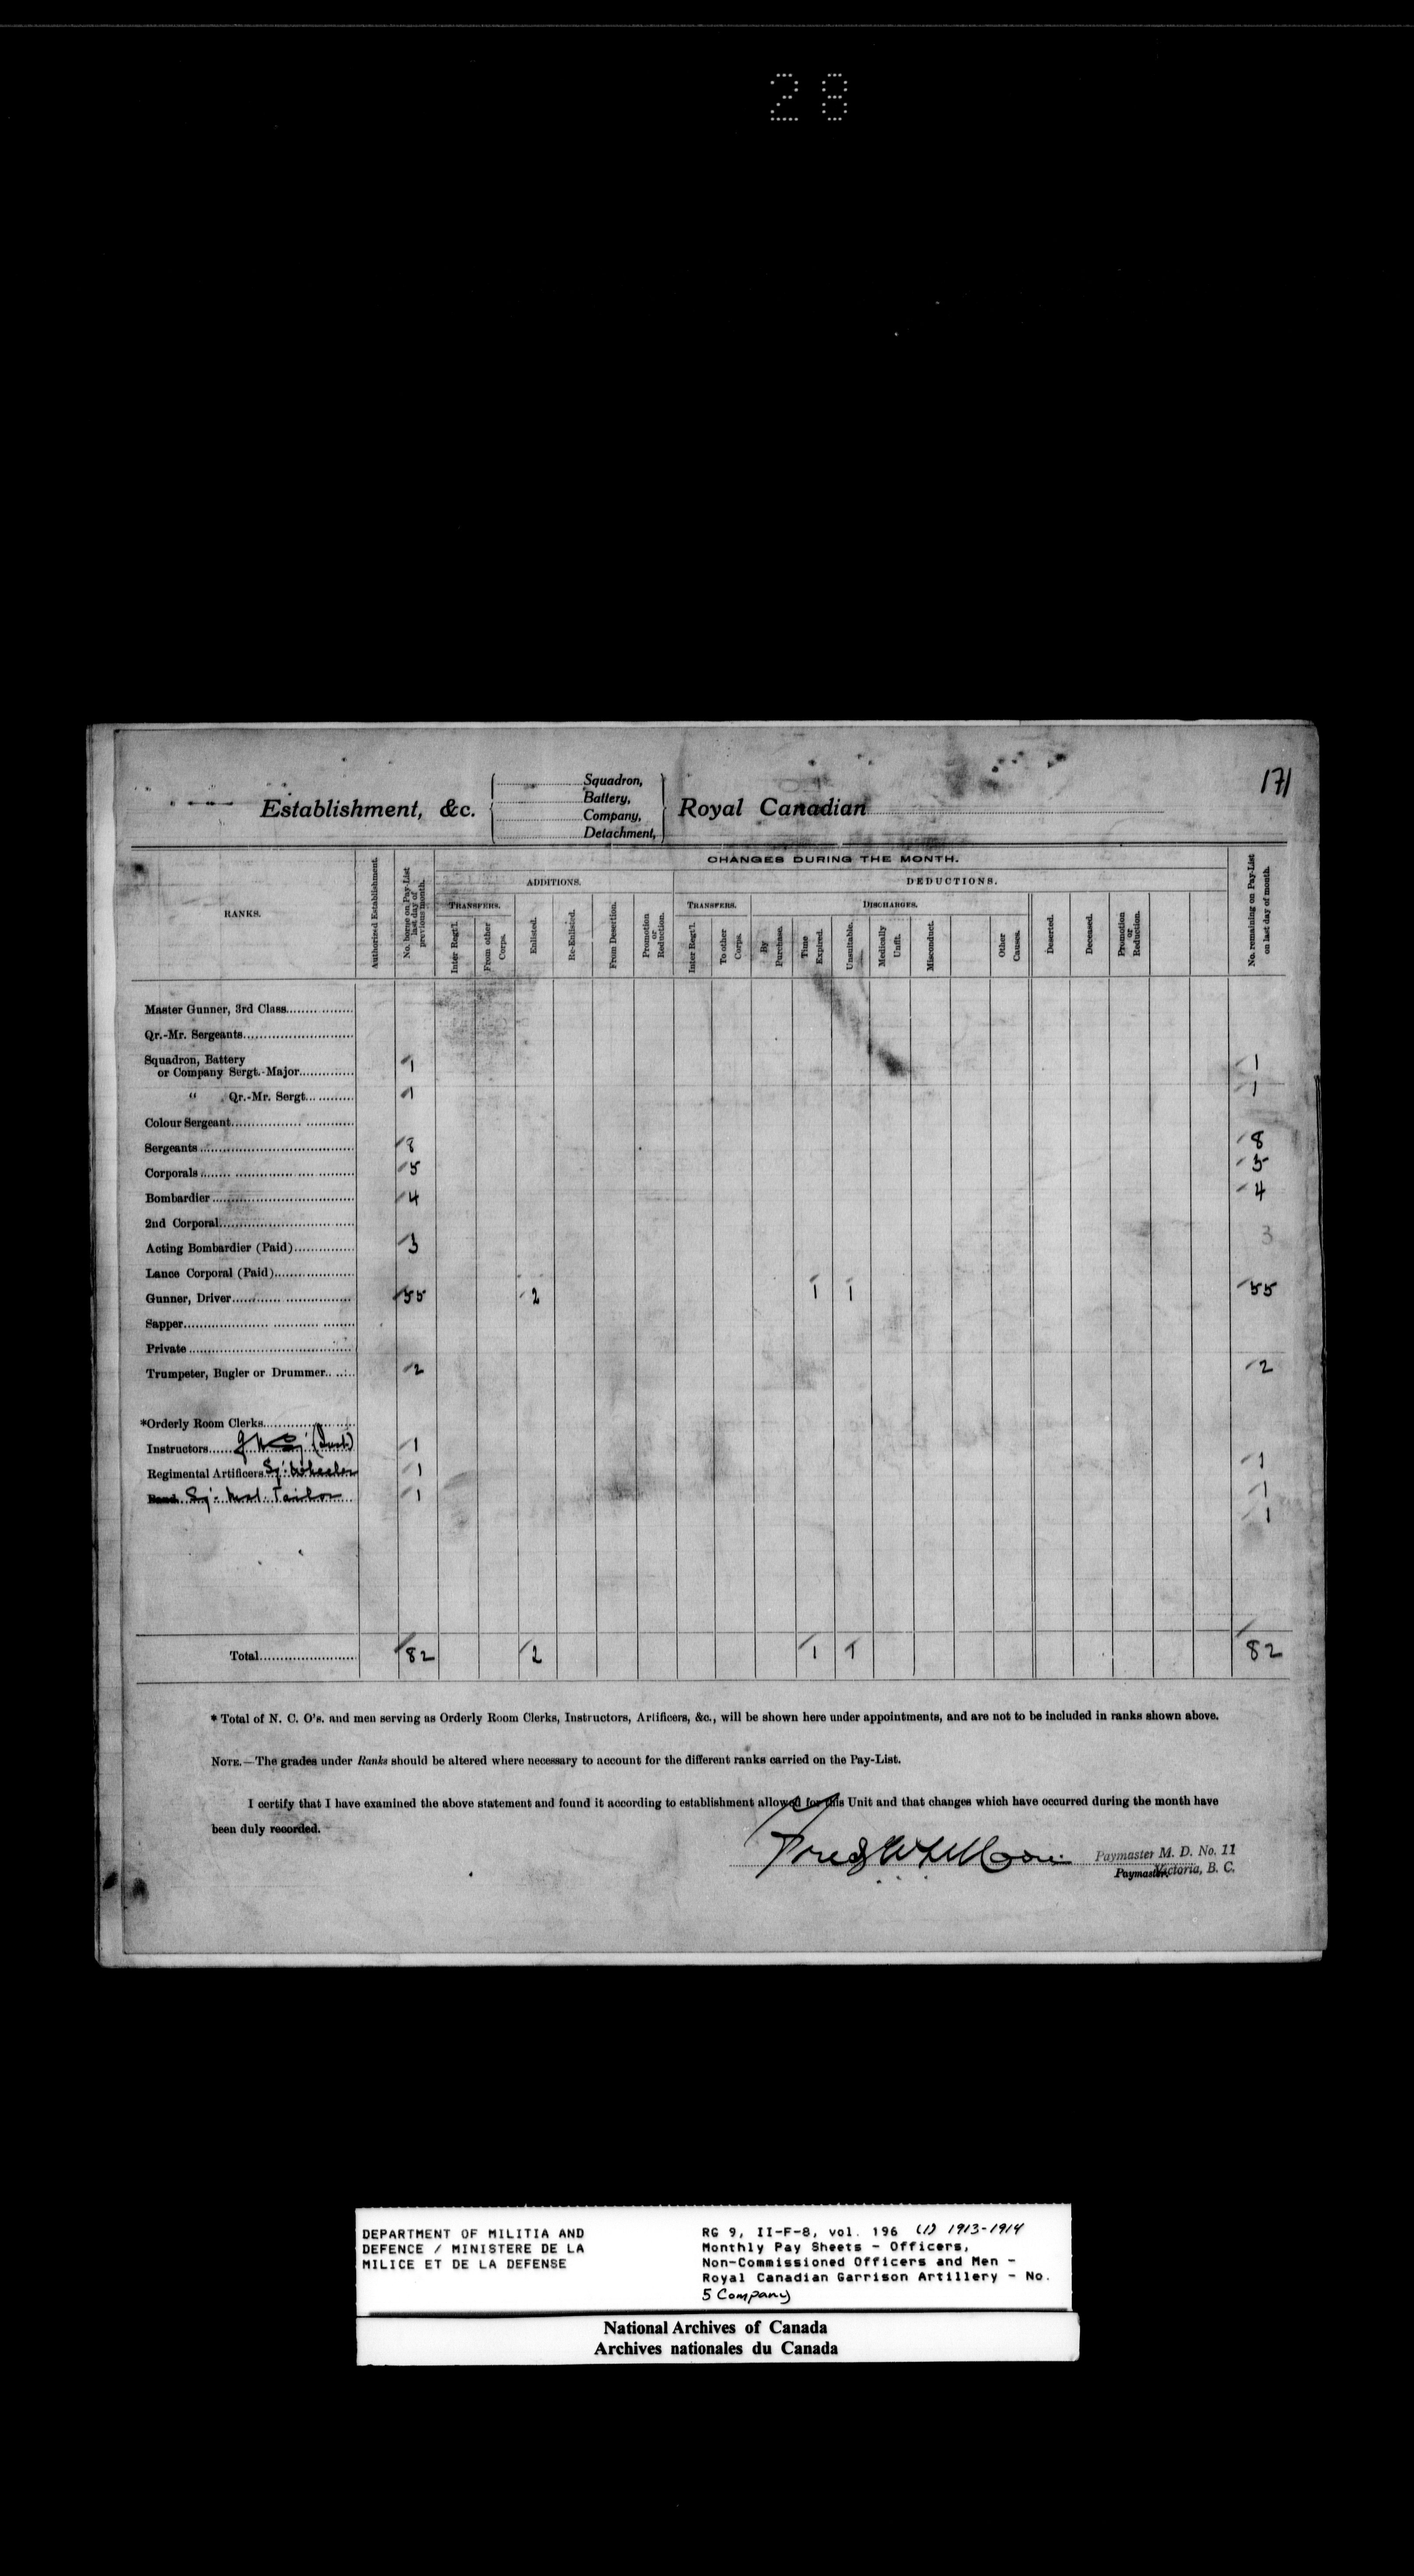 28
171
Squadron,
Battery,
Establishment, &c. Royal Canadian
Company,
Detachment,
CHANGES DURING THE MONTH.
ADDITIONS. DEDUCTIONS.
TRANSFERS. TRANSFERS. DISCHARGES.
RANKS.
Authorized Establishment.
No. borne on Pay-List last day of previous month.
Inter Regt'l.
From other Corps.
Enlisted.
Re-Enlisted.
From Desertion.
Promotion or Reduction.
Inter Regt'l.
To other Corps.
By Purchase.
Time Expired.
Unsuitable.
Medically Unfit.
Misconduct.
Other Causes.
Deserted.
Deceased.
Promotion or Reduction.
No. remaining on Pay-List on last day of month.
Master Gunner, 3rd Class
Qr.-Mr. Sergeants
Squadron, Battery
or Company Sergt.-Major 1 1
" Qr.-Mr. Sergt. 1 1
Colour Sergeant
Sergeants 8 8
Corporals 5 5
Bombardier 4 4
2nd Corporal
Acting Bombardier (Paid) 3 3
Lance Corporal (Paid)
Gunner, Driver 55 2 1 1 55
Sapper
Private
Trumpeter, Bugler or Drummer 2 2
*Orderly Room Clerks
Instructors 1
Regimental Artificers Sj: Wheeler 1 1
Band Sj: Mast. Tailor 1 1
1
Total 82 2 1 1 82
* Total of N. C. O's. and men serving as Orderly Room Clerks, Instructors, Artificers, &c., will be shown here under appointments, and are not to be included in ranks shown above.
NOTE.—The grades under Ranks should be altered where necessary to account for the different ranks carried on the Pay-List.
I certify that I have examined the above statement and found it according to establishment allowed for this Unit and that changes which have occurred during the month have
been duly recorded.
Paymaster M. D. No. 11
Paymaster. Victoria, B. C.
DEPARTMENT OF MILITIA AND
DEFENCE / MINISTERE DE LA
MILICE ET DE LA DEFENSE
RG 9, II-F-8, vol. 196 (1) 1913-1914
Monthly Pay Sheets - Officers,
Non-Commissioned Officers and Men -
Royal Canadian Garrison Artillery - No.
5 Company
National Archives of Canada
Archives nationales du Canada